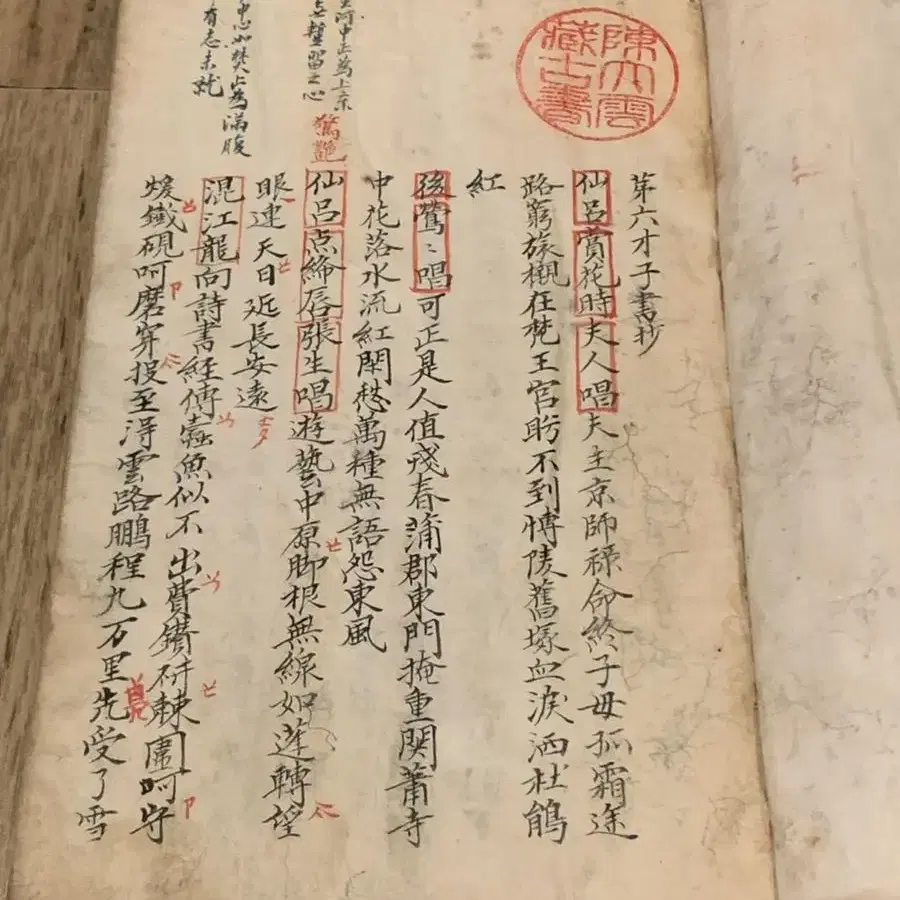 陳大雲
藏古書
第六才子書抄
仙呂賞花時夫人唱夫主京師祿命終子母孤霜途
路窮旅櫬在梵王宮盻不到愽陵舊塚血淚洒杜鵑
紅
後鶯〻唱可正是人值残春蒲郡東門掩重関蕭寺
中花落水流紅閑愁萬種無語怨東風
驚艷
仙呂点絳唇張生唱遊藝中原脚根無線如蓬轉望
眼連天日近長安遠
混江龍向詩書經傳蠹魚似不出費鑽研棘圍呵守
煖鐵硯呵磨穿投至得雲路鵬程九万里先受了雪
里河中正為上京
無暫留之心
中心如焚止為滿腹
有志未就